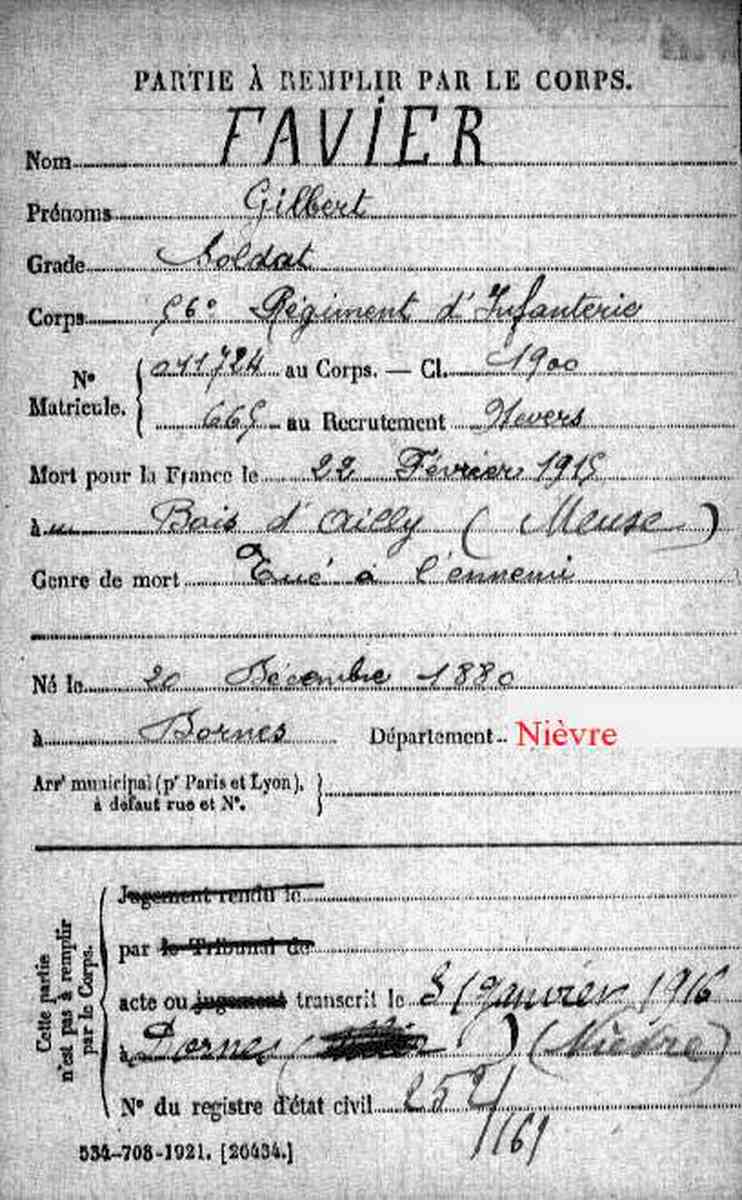 PARTIE À REMPLIR PAR LE CORPS.
Nom FAVIER
Prénoms Gilbert
Grade Soldat
Corps 56e Régiment d'Infanterie
No Matricule. 011724 au Corps. — Cl. 1900
665 au Recrutement Nevers
Mort pour la France le 22 Février 1915
à Bois d'Ailly (Meuse)
Genre de mort Tué à l'ennemi
Né le 20 Décembre 1880
à Dornes Département Nièvre
Arrt municipal (pr Paris et Lyon), à défaut rue et No.
Cette partie n'est pas à remplir par le Corps.
Jugement rendu le
par le Tribunal de
acte ou jugement transcrit le Janvier 1916
à Dornes ( ) (Nièvre)
No du registre d'état civil
534-708-1921. [26434.]